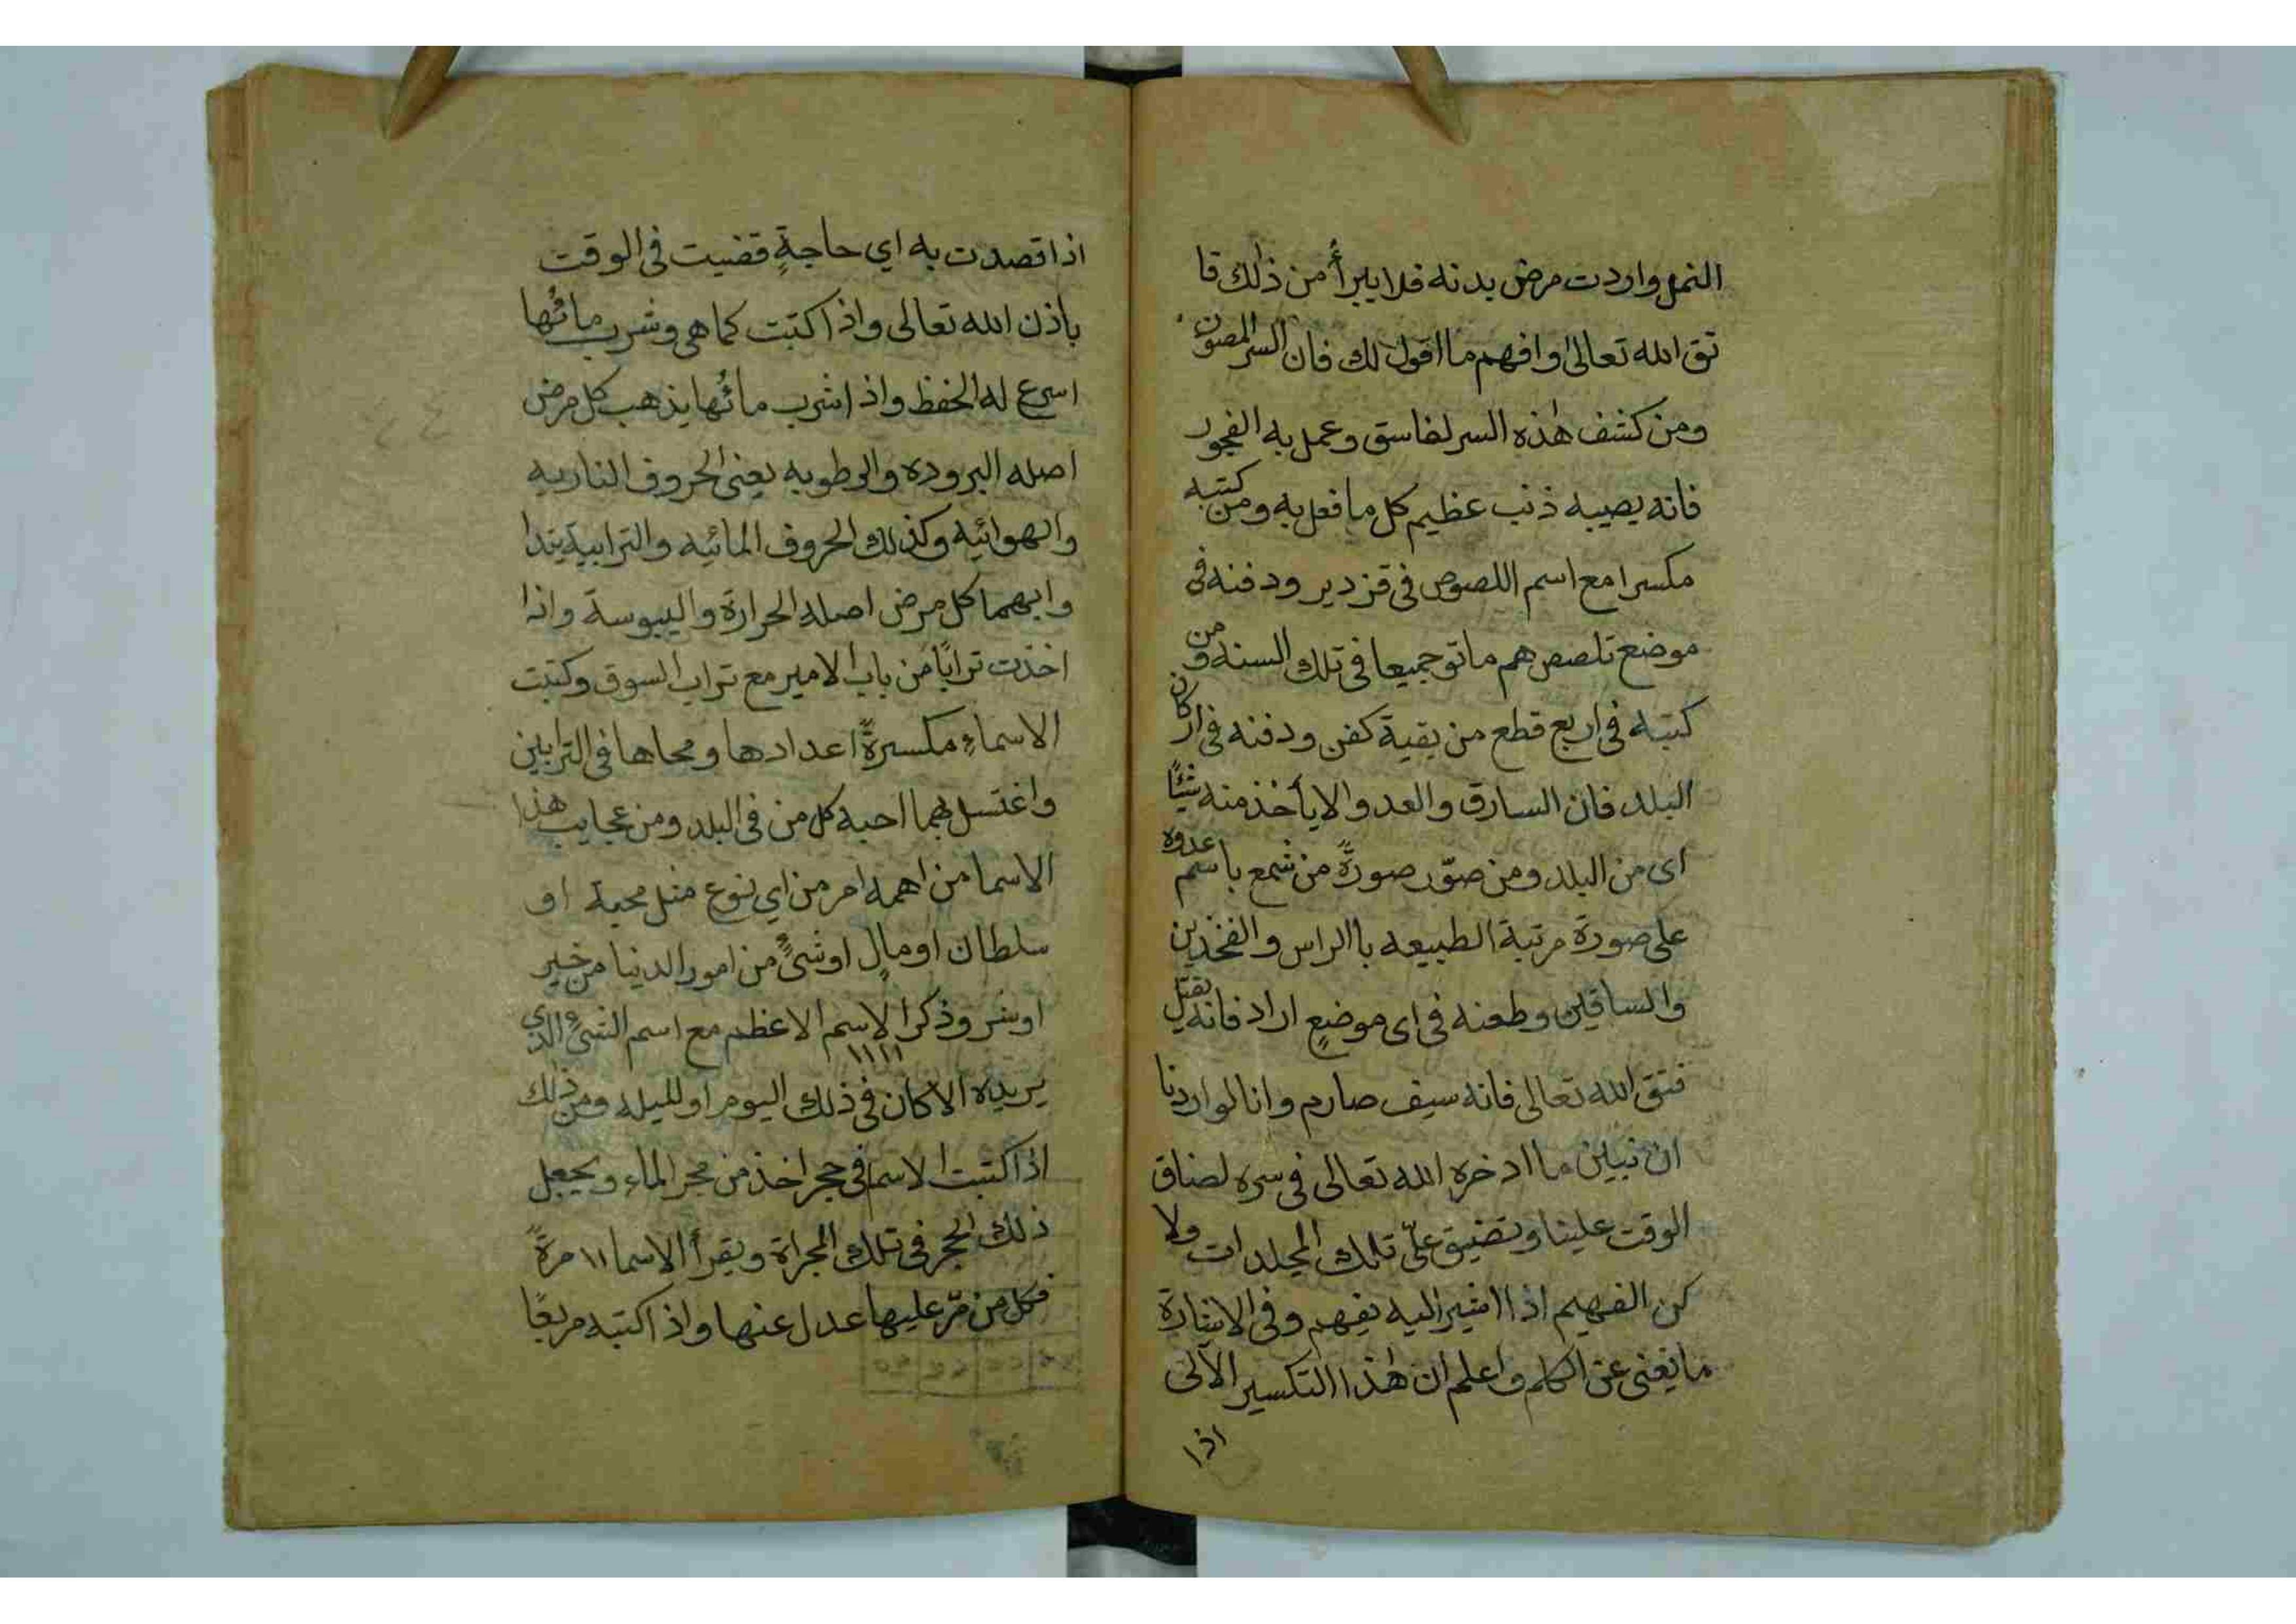 النمل واردت مرض بدنه فلا يبرأ من ذلك فا
تق الله تعالى وافهم ما اقول لك فان السر المصون
ومن كشف هذه السر لفاسق وعمل به الفجور
فانه يصيبه ذنب عظيم كل ما فعل به ومن كتبه
مكسرا مع اسم اللصوص فى قزدير ودفنه فى
موضع تلصصهم ماتو جميعا فى تلك السنه ومن
كتبه فى اربع قطع من بقية كفن ودفنه فى اركان
البلد فان السارق والعدو الا يأخذ منه شيئًا
اى من البلد ومن صوّر صورةً من شمع باسم عدوه
على صورة مرتبة الطبيعه باالراس والفخدين
والساقين وطعنه فى اى موضعٍ اراد فانه يقتل
فتق الله تعالى فانه سيف صارم وانا لو اردنا
ان نبين ما ادخره الله تعالى فى سره لضاق
الوقت علينا وتضيق علىّ تلك المجلدات ولا
كن الفهيم اذا اشير اليه يفهم وفى الاشارة
ما تغنى عن الكلم واعلم ان هذا التكسير الآلى
اذا
اذا قصدت به اي حاجةٍ قضيت فى الوقت
باذن الله تعالى واذا كتبت كما هى وشرب مائها
اسرع له الحفظ واذا شرب مائها يذهب كل مرض
اصله البروده والرطوبه يعنى الحروف الناريه
والهوائيه وكذلك الحروف المائيه والترابية يتدا
وابهما كل مرض اصله الحرارة واليبوسة واذا
اخذت ترابًا من باب الامير مع تراب السوق وكتبت
الاسماء مكسرةً اعدادها ومحاها فى الترابين
واغتسل بهما احبه كل من فى البلد ومن عجايب هذا
الاسما من اهمه امر من اي نوع مثل محبة او
سلطان او مالٍ او شىءٍ من امور الدنيا من خير
او شر وذكر الاسم الاعظم مع اسم الشىء الذي
١١١١
يريده الا كان فى ذلك اليوم او لليله ومن ذلك
اذا كتبت الاسما فى حجر اخذ من مجر الماء ويجعل
ذلك الحجر فى تلك المجراة ويقرأ الاسما ١١ مرةً
فكل من مرّ عليها عدل عنها واذا كتبه مربعًا